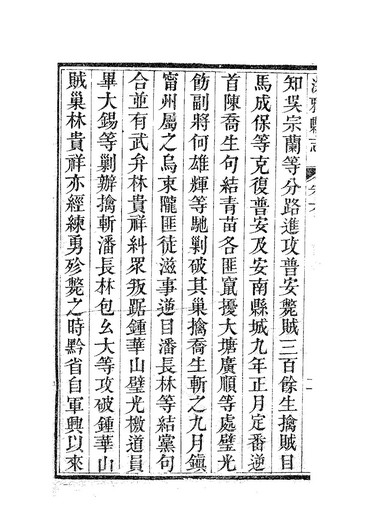 知吳宗蘭等分路進攻普安斃賊三百餘生擒賊目
馬成保等克復普安及安南縣城九年正月定番逆
首陳喬生句結青苗各匪竄擾大塘廣順等處璧光
飭副將何雄輝等馳剿破其巢擒喬生斬之九月鎮
甯州屬之烏東隴匪徒滋事逆目潘長林等結黨句
合並有武弁林貴祥糾眾叛踞鍾華山璧光檄道員
畢大錫等剿辦擒斬潘長林包幺大等攻破鍾華山
賊巢林貴祥亦經練勇殄斃之時黔省自軍興以來